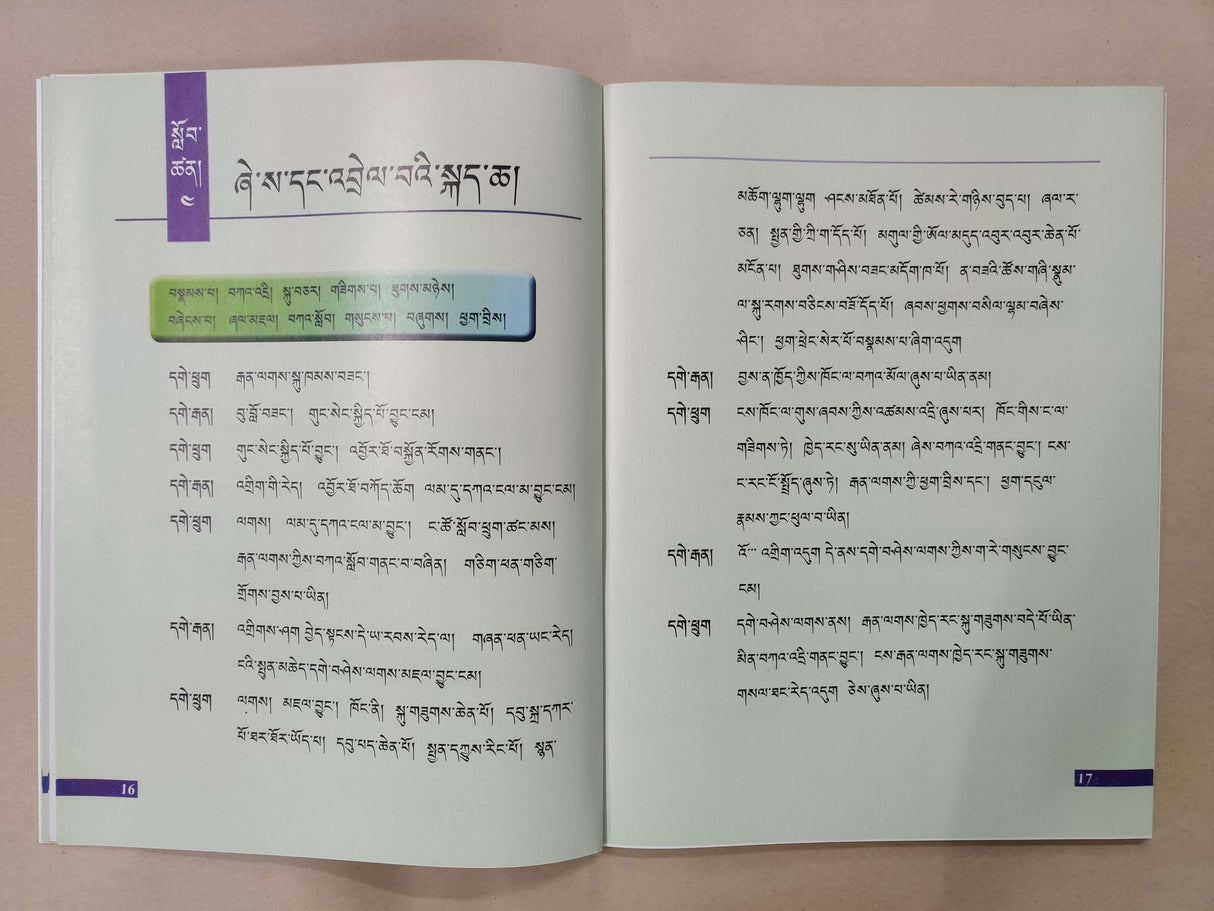 སློབ་
ཚན།
༤
ཞེ་ས་དང་འབྲེལ་བའི་སྐད་ཆ།
བསྣམས་པ། བཀའ་འདྲི། སྐུ་བཅར། གཟིགས་པ། ཐུགས་མཉེས།
བཞེངས་པ། ཞལ་མཇལ། བཀའ་སློབ། གསུངས་པ། བཞུགས། ཕྱག་བྲིས།
དགེ་ཕྲུག རྒན་ལགས་སྐུ་ཁམས་བཟང་།
དགེ་རྒན། བུ་བློ་བཟང་། གུང་སེང་སྐྱིད་པོ་བྱུང་ངམ།
དགེ་ཕྲུག གུང་སེང་སྐྱིད་པོ་བྱུང་། འབྱོར་ཐོ་བསྐྱོན་རོགས་གནང་།
དགེ་རྒན། འགྲིག་གི་རེད། འབྱོར་ཐོ་བཀོད་ཆོག ལམ་དུ་དཀའ་ངལ་མ་བྱུང་ངམ།
དགེ་ཕྲུག ལགས། ལམ་དུ་དཀའ་ངལ་མ་བྱུང་། ང་ཚོ་སློབ་ཕྲུག་ཚང་མས།
རྒན་ལགས་ཀྱིས་བཀའ་སློབ་གནང་བ་བཞིན། གཅིག་ཕན་གཅིག་
གྲོགས་བྱས་པ་ཡིན།
དགེ་རྒན། འགྲིགས་ཤག བྱེད་སྟངས་དེ་ཡ་རབས་རེད་ལ། གཞན་ཕན་ཡང་རེད།
ངའི་སྤུན་མཆེད་དགེ་བཤེས་ལགས་མཇལ་བྱུང་ངམ།
དགེ་ཕྲུག ལགས། མཇལ་བྱུང་། ཁོང་ནི། སྐུ་གཟུགས་ཆེན་པོ། དབུ་སྐྲ་དཀར་
པོ་ཐར་ཐོར་ཡོད་པ། དབུ་པད་ཆེན་པོ། སྤྱན་དཀྱུས་རིང་པོ། སྙན་
16
མཆོག་ལྷུག་ལྷུག ཤངས་མཐོན་པོ། ཚེམས་རེ་གཉིས་བུད་པ། ཞལ་ར་
ཅན། སྤྱན་གྱི་ཀྲི་ག་དོད་པོ། མགུལ་གྱི་ཨོལ་མདུད་འབུར་འབུར་ཆེན་པོ་
མངོན་པ། ཐུགས་གཤིས་བཟང་མདོག་ཁ་པོ། ན་བཟའི་ཚོས་གཞི་སྣུམ་
ལ་སྐུ་རགས་བཅིངས་བཟོ་དོད་པོ། ཞབས་ཕྱགས་བསིལ་ལྷམ་བཞེས་
ཤིང་། ཕྱག་ཕྲེང་སེར་པོ་བསྣམས་པ་ཞིག་འདུག
དགེ་རྒན། བྱས་ན་ཁྱོད་ཀྱིས་ཁོང་ལ་བཀའ་མོལ་ཞུས་པ་ཡིན་ནམ།
དགེ་ཕྲུག ངས་ཁོང་ལ་གུས་ཞབས་ཀྱིས་འཚམས་འདྲི་ཞུས་པར། ཁོང་གིས་ང་ལ་
གཟིགས་ཏེ། ཁྱེད་རང་སུ་ཡིན་ནམ། ཞེས་བཀའ་འདྲི་གནང་བྱུང་། ངས་
ང་རང་ངོ་སྤྲོད་ཞུས་ཏེ། རྒན་ལགས་ཀྱི་ཕྱག་བྲིས་དང་། ཕྱག་དངུལ་
རྣམས་ཀྱང་ཕུལ་བ་ཡིན།
དགེ་རྒན། འོ་་་ འགྲིག་འདུག དེ་ནས་དགེ་བཤེས་ལགས་ཀྱིས་ག་རེ་གསུངས་བྱུང་
ངམ།
དགེ་ཕྲུག དགེ་བཤེས་ལགས་ནས། རྒན་ལགས་ཁྱེད་རང་སྐུ་གཟུགས་བདེ་པོ་ཡིན་
མིན་བཀའ་འདྲི་གནང་བྱུང་། ངས་རྒན་ལགས་ཁྱེད་རང་སྐུ་གཟུགས་
གསལ་ཐང་རེད་འདུག ཅེས་ཞུས་པ་ཡིན།
17